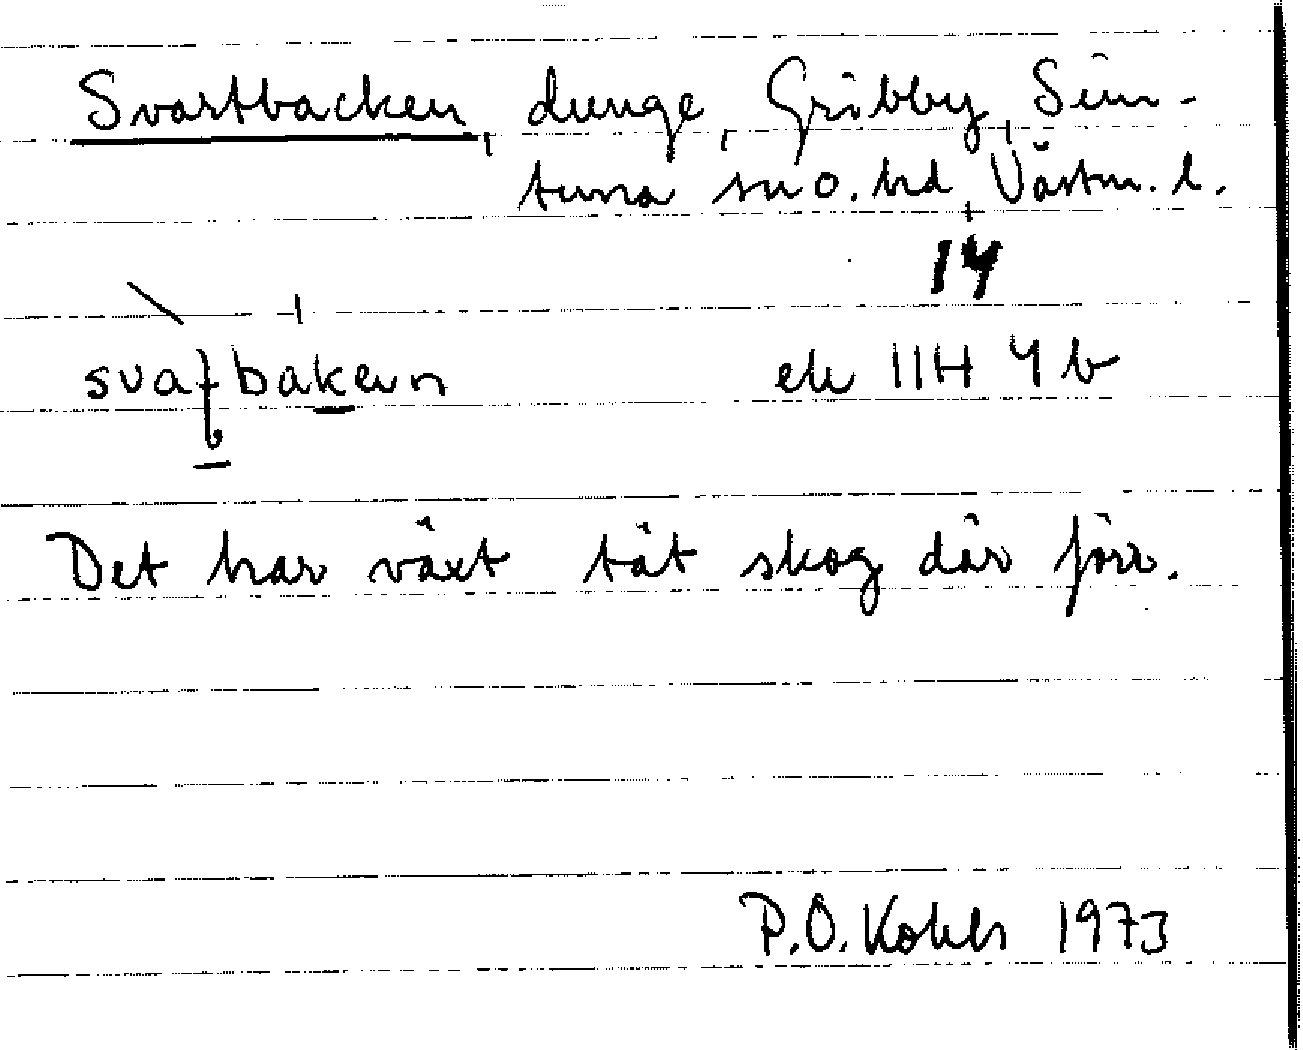 Svartbacken, dunge, Gråbby, Sim-
tuna sn o. hd, Västm. l.
14
bakan
ek 11H 4b
Det har växt tät skog där förr.
P.O. Kohls 1973